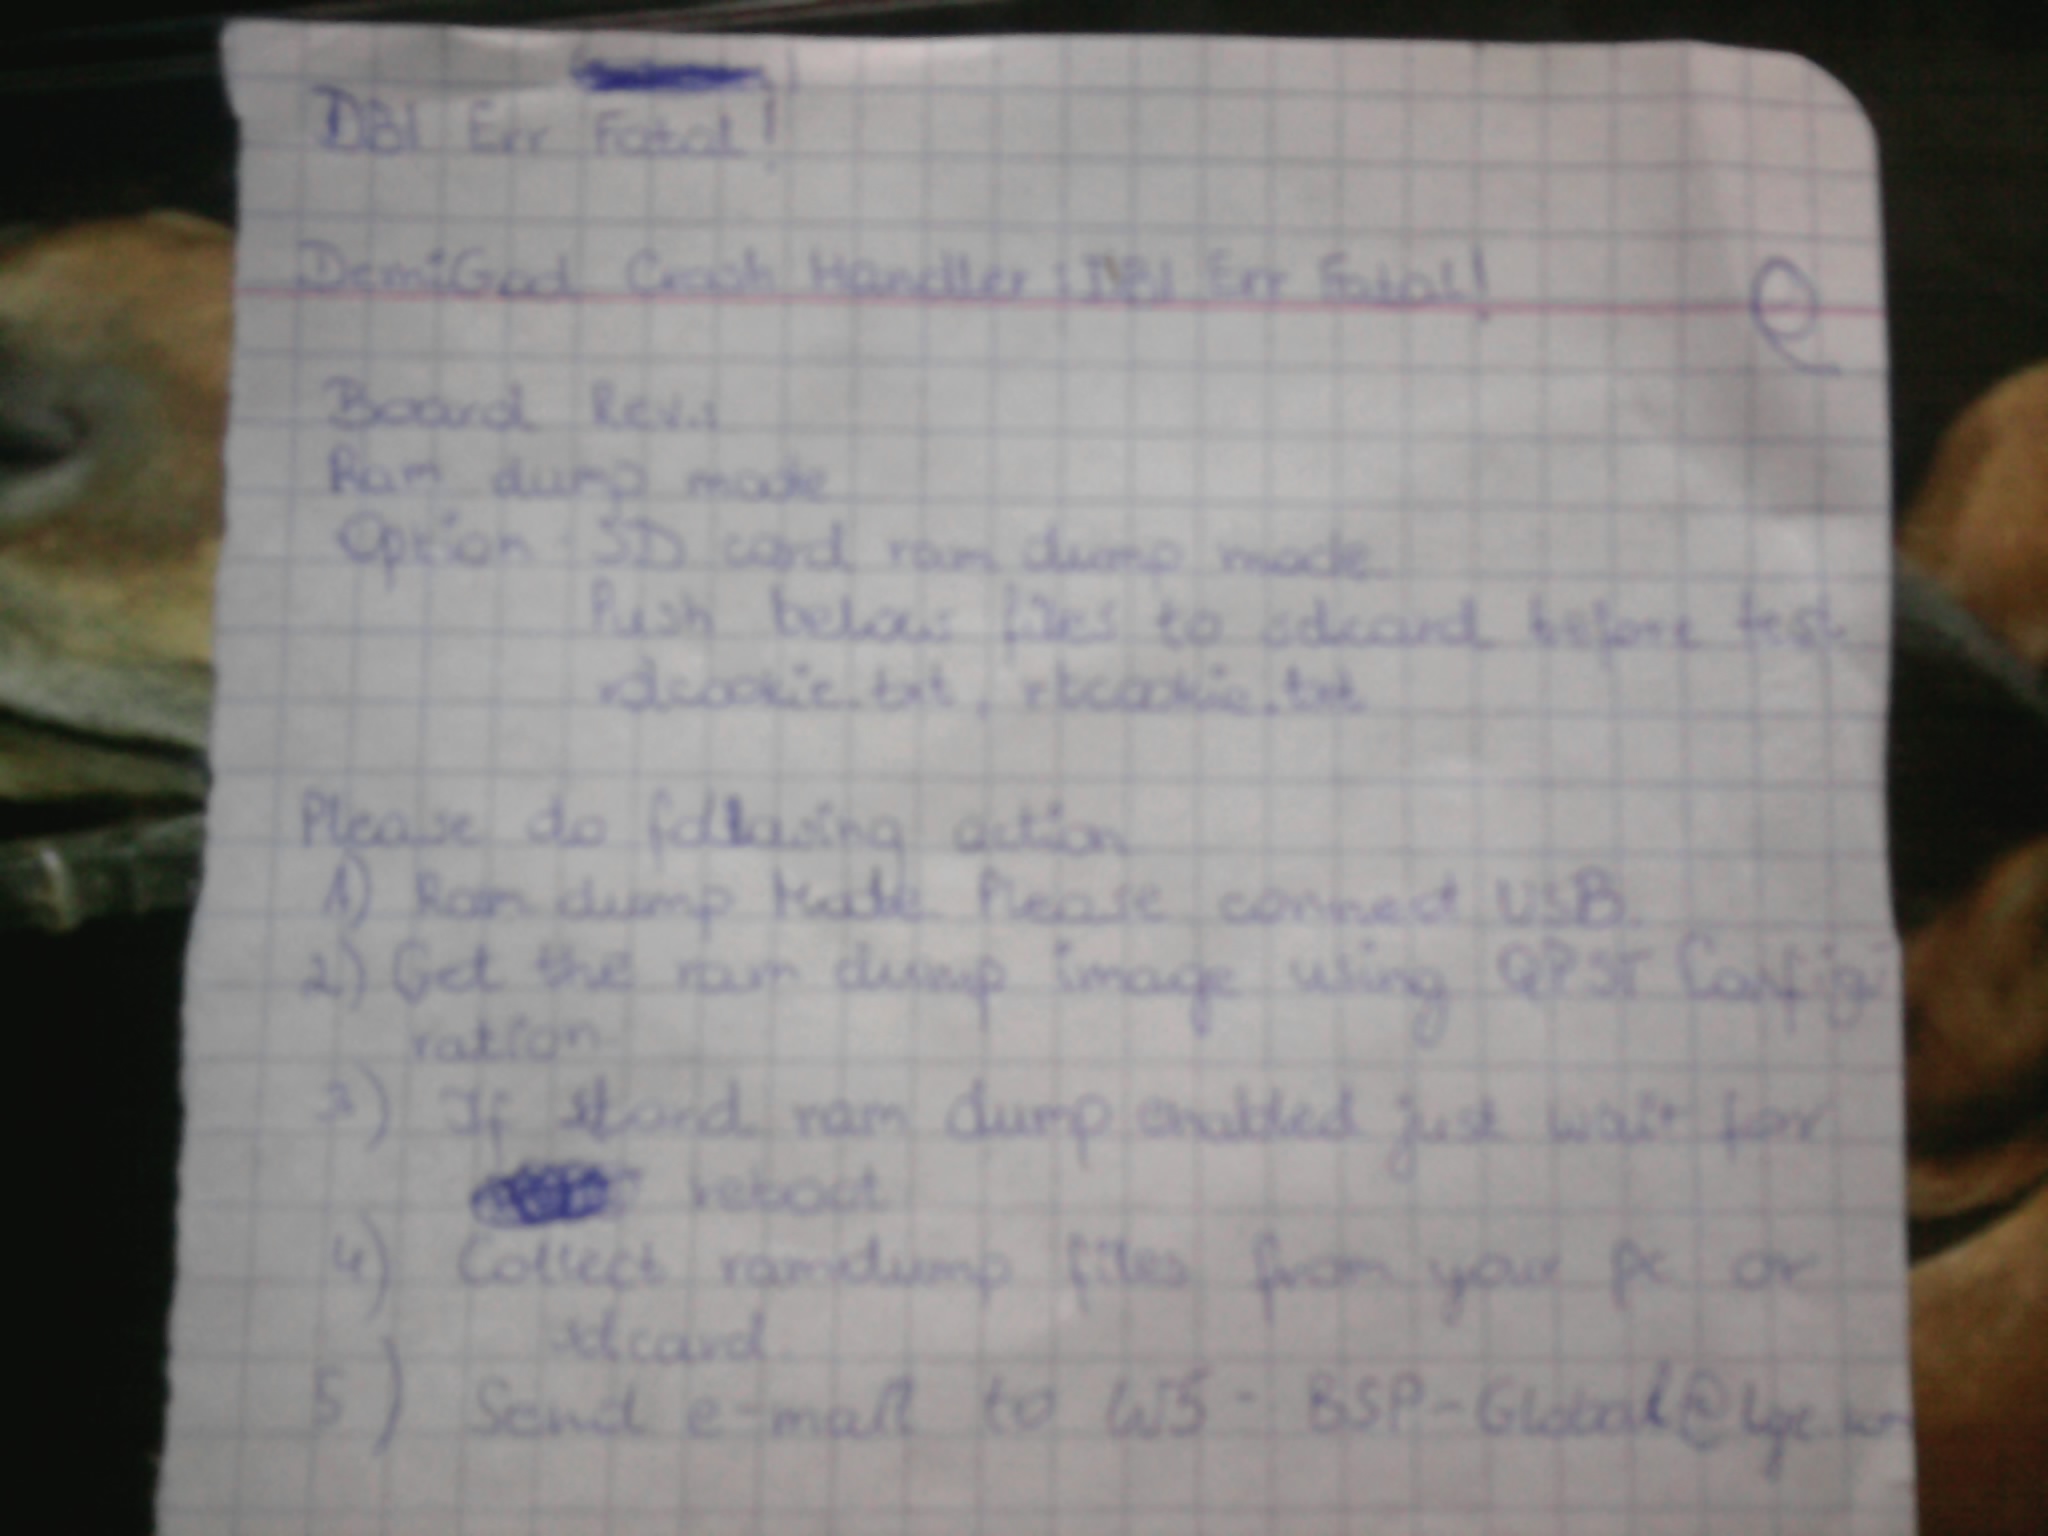 DBI Err Fatal!
DemiGod Crash Handler : DBI Err Fatal!
Board Rev.:
Ram dump mode
Option - SD card ram dump mode
Push below files to sdcard before test
rdcookie.txt, rtcookie.txt
Please do following action
1) Ram dump Mode Please connect USB.
2) Get the ram dump image using QPST Configu
ration
3) If sdcard ram dump enabled just wait for
reboot
4) Collect ramdump files from your pc or
sdcard.
5) Send e-mail to W5-BSP-Global@lge.com